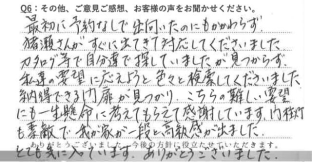 Q6：その他、ご意見ご感想、お客様の声をお聞かせください。
最初に予約なしで出向いたのにもかかわらず、
猪瀬さんがすぐに出てきて対応してくださいました。
カタログ等で自分達で探していましたが見つからず、
私達の要望に応えようと色々と検索してくださいました。
納得できる内扉が見つかり、こちらの難しい要望
にも一生懸命に考えてもらえて感謝しています。内
も素敵で我が家が一段と高級感が出ました。
とても気に入っています。ありがとうございました。
ありがとうございました。今後の方針に役立たせていただきます。